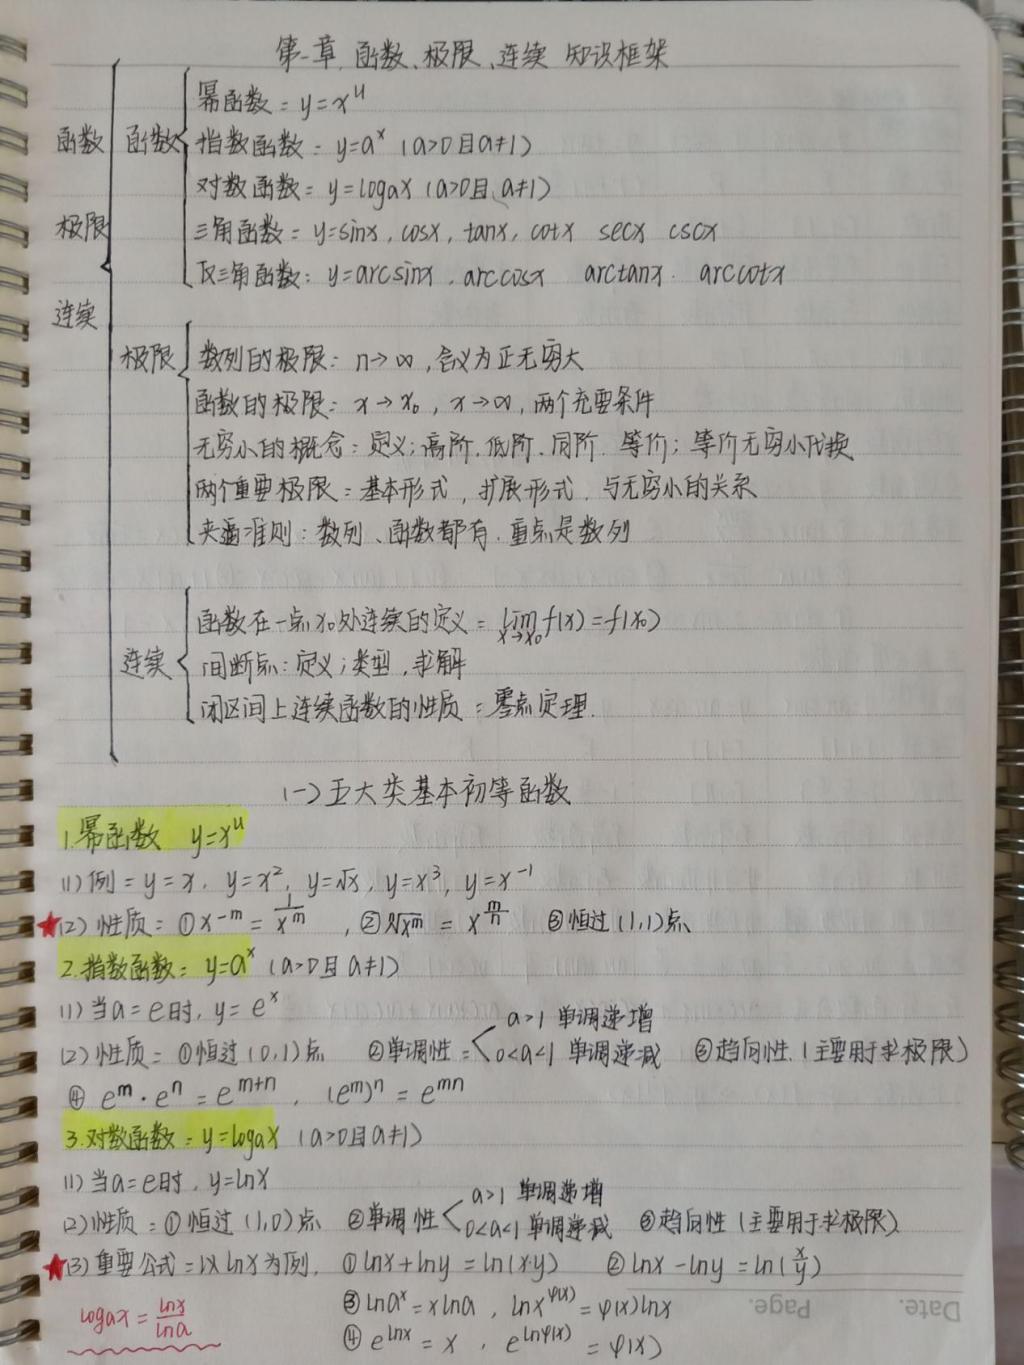 第一章 函数、极限、连续 知识框架
函数 极限 连续
函数
幂函数: y=x^u
指数函数: y=a^x (a>0且a≠1)
对数函数: y=logax (a>0且a≠1)
三角函数: y=sinx, cosx, tanx, cotx secx cscx
反三角函数: y=arcsinx, arccosx arctanx. arccotx
极限
数列的极限: n→∞, 含义为正无穷大
函数的极限: x→x₀, x→∞, 两个充要条件
无穷小的概念: 定义; 高阶、低阶、同阶、等价; 等价无穷小代换
两个重要极限: 基本形式, 扩展形式, 与无穷小的关系
夹逼准则: 数列、函数都有, 重点是数列
连续
函数在一点x₀处连续的定义: lim x→x₀ f(x)=f(x₀)
间断点: 定义; 类型, 求解
闭区间上连续函数的性质: 零点定理.
(一) 五大类基本初等函数
1.幂函数 y=x^u
(1) 例: y=x, y=x², y=√x, y=x³, y=x⁻¹
★(2) 性质: ①x^-m = 1/x^m , ②ⁿ√x^m = x^(m/n) ③恒过(1,1)点
2.指数函数: y=a^x (a>0且a≠1)
(1) 当a=e时, y=e^x
(2) 性质: ①恒过(0,1)点 ②单调性: a>1 单调递增 0<a<1 单调递减 ③趋向性. (主要用于求极限)
④ e^m·e^n = e^(m+n) , (e^m)^n = e^mn
3.对数函数: y=logax (a>0且a≠1)
(1) 当a=e时, y=lnx
(2) 性质: ①恒过(1,0)点 ②单调性 a>1 单调递增 0<a<1 单调递减 ③趋向性 (主要用于求极限)
★(3) 重要公式: 以lnx为例. ①lnx+lny=ln(x·y) ②lnx-lny=ln(x/y)
logax = lnx/lna
③lna^x = xlna , lnx^φ(x) = φ(x)lnx
④e^lnx = x , e^lnφ(x) = φ(x)
Date. Page.